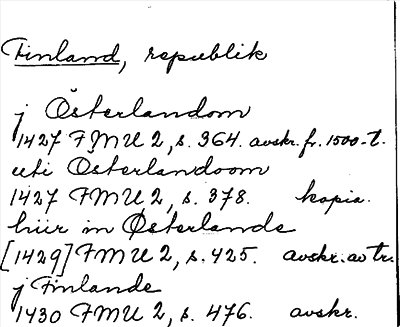 Finland, republik
j Österlandom
1427 FMU 2, s. 364. avskr. fr. 1500-t.
uti Österlandoom
1427 FMU 2, s. 378. kopia.
hiir in Østerlande
[1429] FMU 2, s. 425. avskr. av tr.
j Finlande
1430 FMU 2, s. 476. avskr.